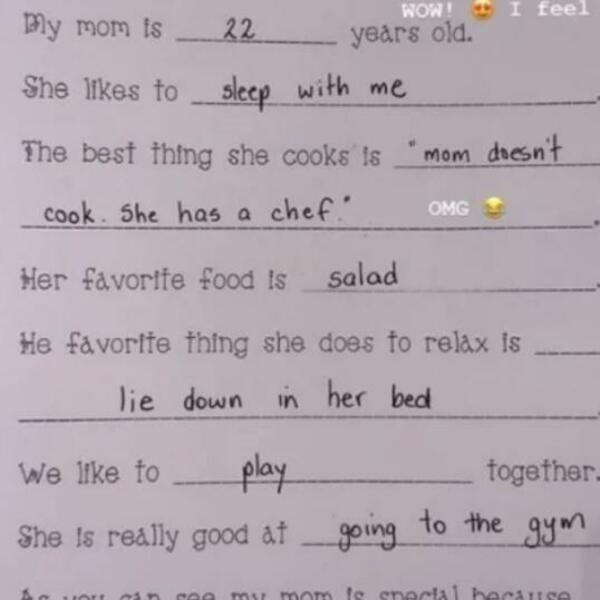 WOW! 😍 I feel
My mom is 22 years old.
She likes to sleep with me.
The best thing she cooks is "mom doesn't
cook. She has a chef." OMG 😂
Her favorite food is salad.
He favorite thing she does to relax is
lie down in her bed
We like to play together.
She is really good at going to the gym
As you can see my mom is special because